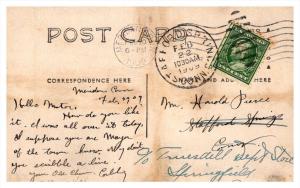 POST CARD
STAFFORD SPRINGS
CONN.
FEB
22
1030AM
1909
6-PM
CORRESPONDENCE HERE
NAME AND ADDRESS HERE
Meriden Conn
Feb, 1909
Hello Mister.
How do you like
it. I was all over it today
I suppose you are Mayor
of the town now. Why don't
you scribble a line.
your Old Chum Cubby
Mr. Harold Pierce
Stafford Springs
Conn
To Truesdell Dept Store
Springfield